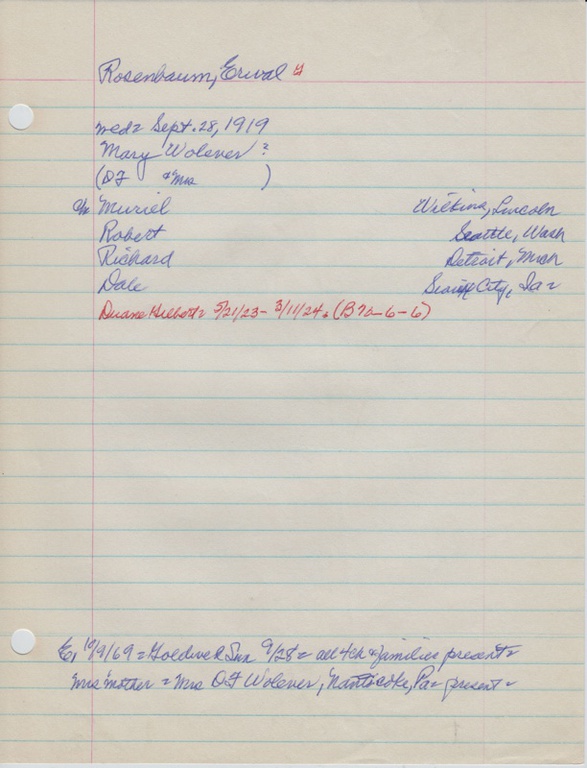 Rosenbaum, Erwal
med= Sept. 28, 1919
Mary Wolever ?
(DF & Mrs )
ch Muriel Wilkins, Lincoln
Robert Seattle, Wash
Richard Detroit, Mich
Dale Sioux City, Ia=
Duane Hilbert= 5/21/23- 3/11/24. (B70-6-6)
E, 10/9/69 = Golden 9/28 = all 4ch & families present=
Mrs mother = Mrs DF Wolever, Nanticoke, Pa= present=